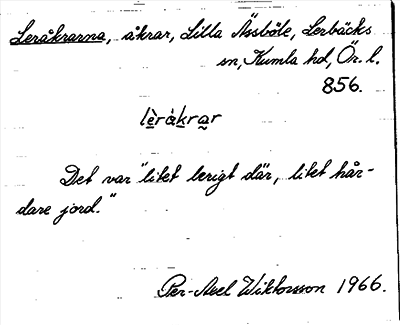 Leråkrarna, åkrar, Lilla Åssböle, Lerbäcks
sn, Kumla hd, Ör. l.
856.
lèråkrar
Det var "litet lerigt där, litet hår-
dare jord."
Per-Axel Wiktorsson 1966.